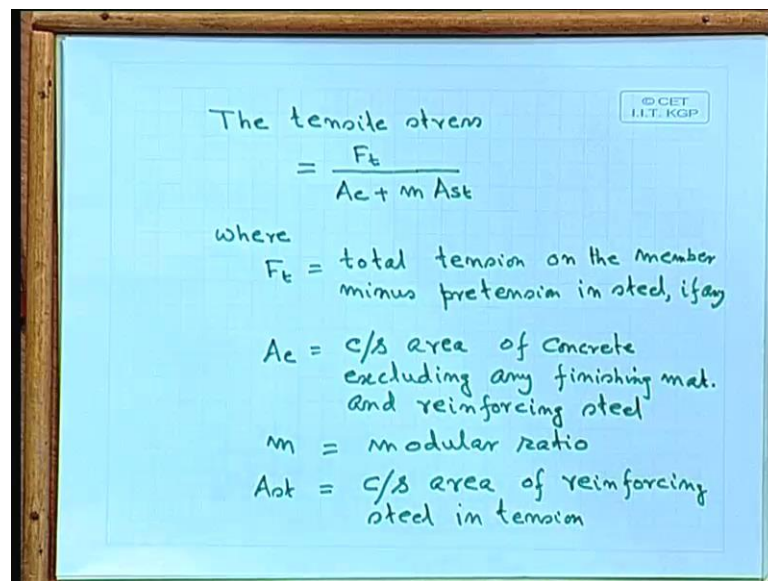 © CET
I.I.T. KGP
The tensile stress
= Ft / Ac + m Ast
where
Ft = total tension on the member
minus pretension in steel, if any
Ac = c/s area of concrete
excluding any finishing mat.
and reinforcing steel
m = modular ratio
Ast = c/s area of reinforcing
steel in tension